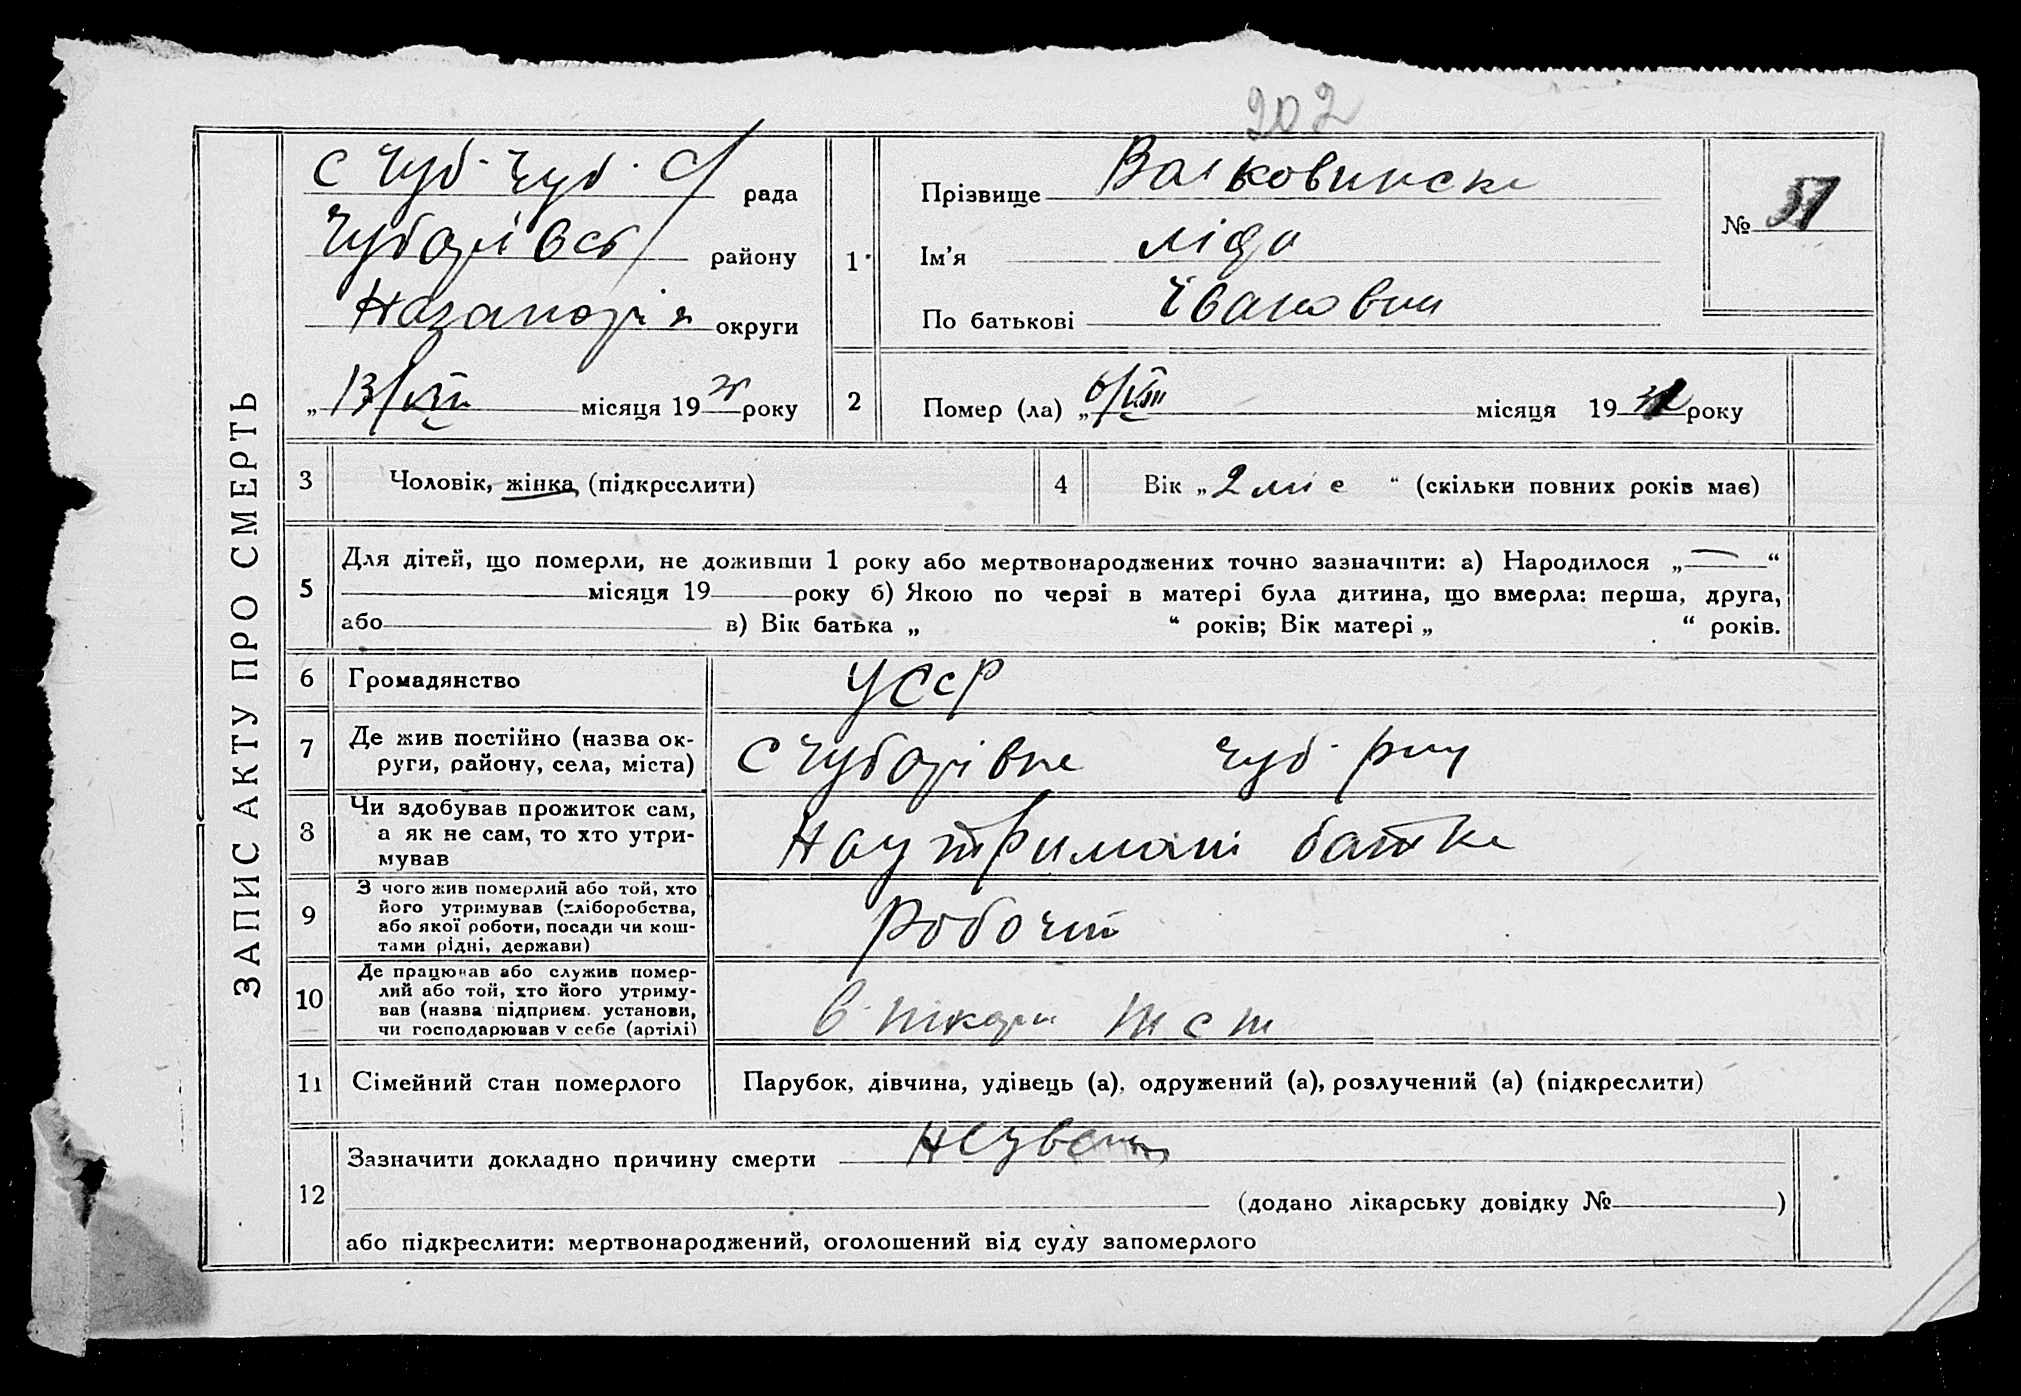 202
ЗАПИС АКТУ ПРО СМЕРТЬ
с Чуб-Чуб. С/ рада
Чубарівсь/ району
округи
„13/VIII місяця 19 року
1
Прізвище Вальковинськ
Ім'я Ліда
По батькові Івановна
№ 51
2
Помер (ла) „6/VIII місяця 19 року
3
Чоловік, жінка (підкреслити)
4
Вік „2 міс“ (скільки повних років має)
5
Для дітей, що померли, не доживши 1 року або мертвонароджених точно зазначити: а) Народилося „—“
місяця 19 року б) Якою по черзі в матері була дитина, що вмерла: перша, друга,
або в) Вік батька „ “ років; Вік матері „ “ років.
6
Громадянство
УССР
7
Де жив постійно (назва ок-
руги, району, села, міста)
с Чубарівка Чуб-
8
Чи здобував прожиток сам,
а як не сам, то хто утри-
мував
На утримані батька
9
З чого жив померлий або той, хто
його утримував (хліборобства,
або якої роботи, посади чи кош-
тами рідні, держави)
Робочий
10
Де працював або служив помер-
лий або той, хто його утриму-
вав (назва підприєм. установи,
чи господарював у себе (артілі)
в пікарн
11
Сімейний стан померлого
Парубок, дівчина, удівець (а), одружений (а), розлучений (а) (підкреслити)
12
Зазначити докладно причину смерти
(додано лікарську довідку № )
або підкреслити: мертвонароджений, оголошений від суду запомерлого